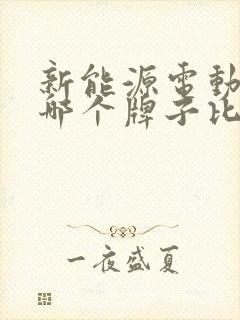 新能源電動
哪个牌子比
一夜盛夏